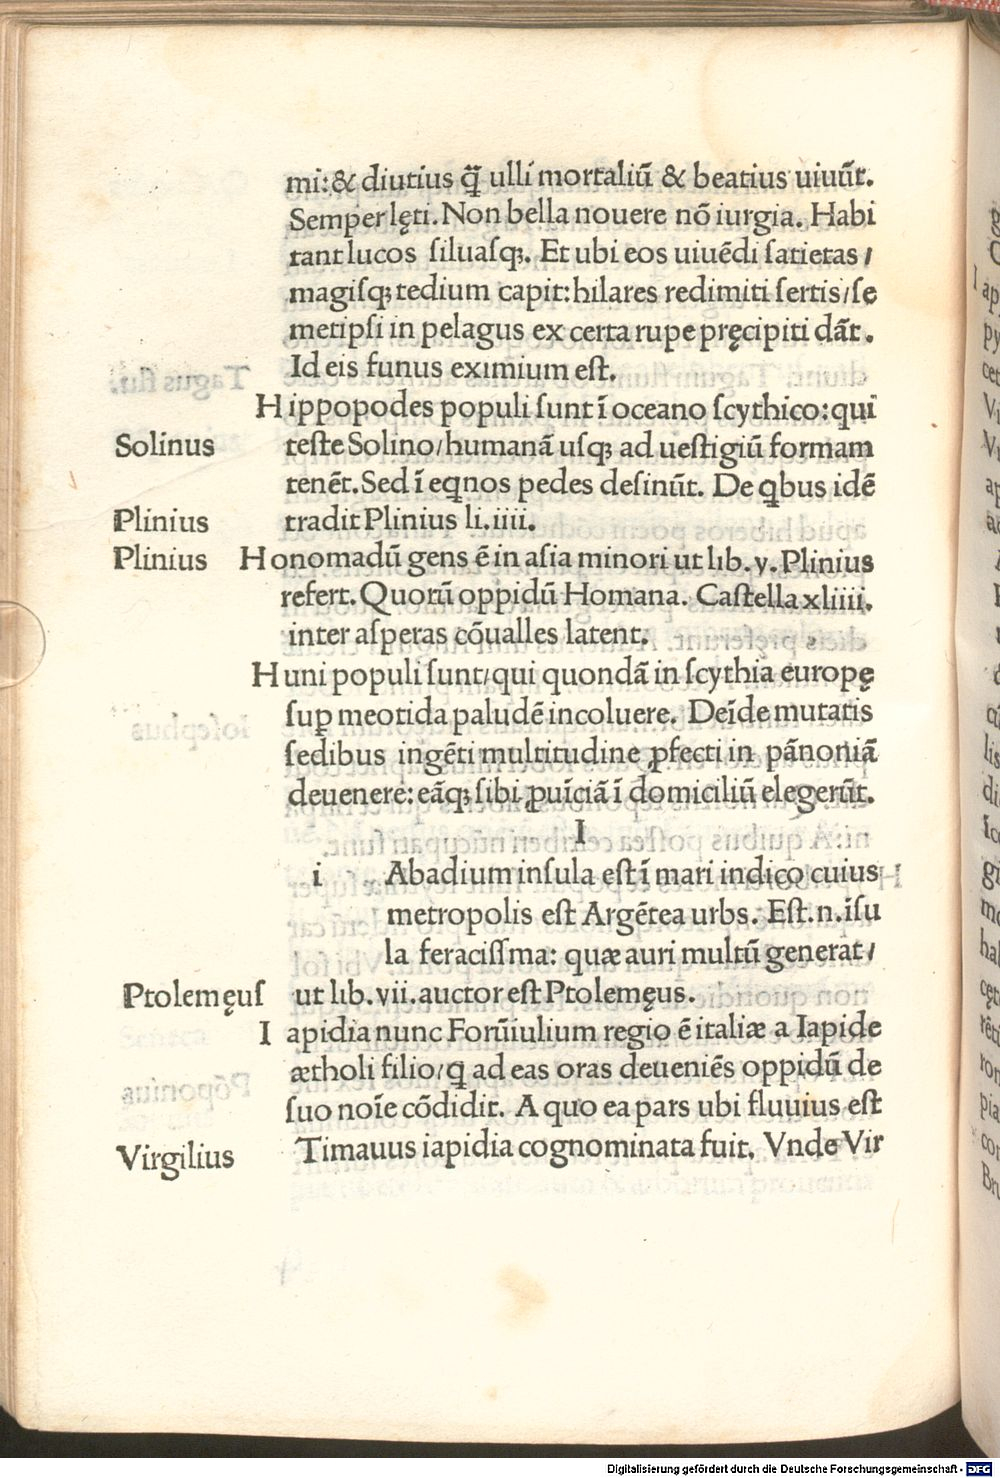 mi:& diutius q̃ ulli mortaliũ & beatius uiuũt.
Semper lęti. Non bella nouere nõ iurgia. Habi
tant lucos siluasqꝫ. Et ubi eos uiuẽdi satietas/
magisqꝫ tedium capit: hilares redimiti sertis/se
metipsi in pelagus ex certa rupe pręcipiti dãt.
Id eis funus eximium est.
Hippopodes populi sunt ĩ oceano scythico: qui
Solinus teste Solino/humanã usqꝫ ad uestigiũ formam
tenẽt. Sed ĩ eqnos pedes desinũt. De ꝗbus idẽ
Plinius tradit Plinius li. iiii.
Plinius Honomadũ gens ẽ in asia minori ut lib. y. Plinius
refert. Quorũ oppidũ Homana. Castella xliiii.
inter asperas cõualles latent.
Huni populi sunt/qui quondã in scythia europę
suꝑ meotida paludẽ incoluere. Deĩde mutatis
sedibus ingẽti multitudine ꝓfecti in pãnoniã
deuenere: eãqꝫ sibi ꝓuĩciã ĩ domiciliũ elegerũt.
I
i Abadium insula est ĩ mari indico cuius
metropolis est Argẽtea urbs. Est. n. ĩsu
la feracissma: quæ auri multũ generat/
Ptolemęus ut lib. vii. auctor est Ptolemęus.
Iapidia nunc Forũiulium regio ẽ italiæ a Iapide
ætholi filio/ꝗ ad eas oras deueniẽs oppidũ de
suo noĩe cõdidit. A quo ea pars ubi fluuius est
Virgilius Timauus iapidia cognominata fuit. Vnde Vir
Digitalisierung gefördert durch die Deutsche Forschungsgemeinschaft - DFG